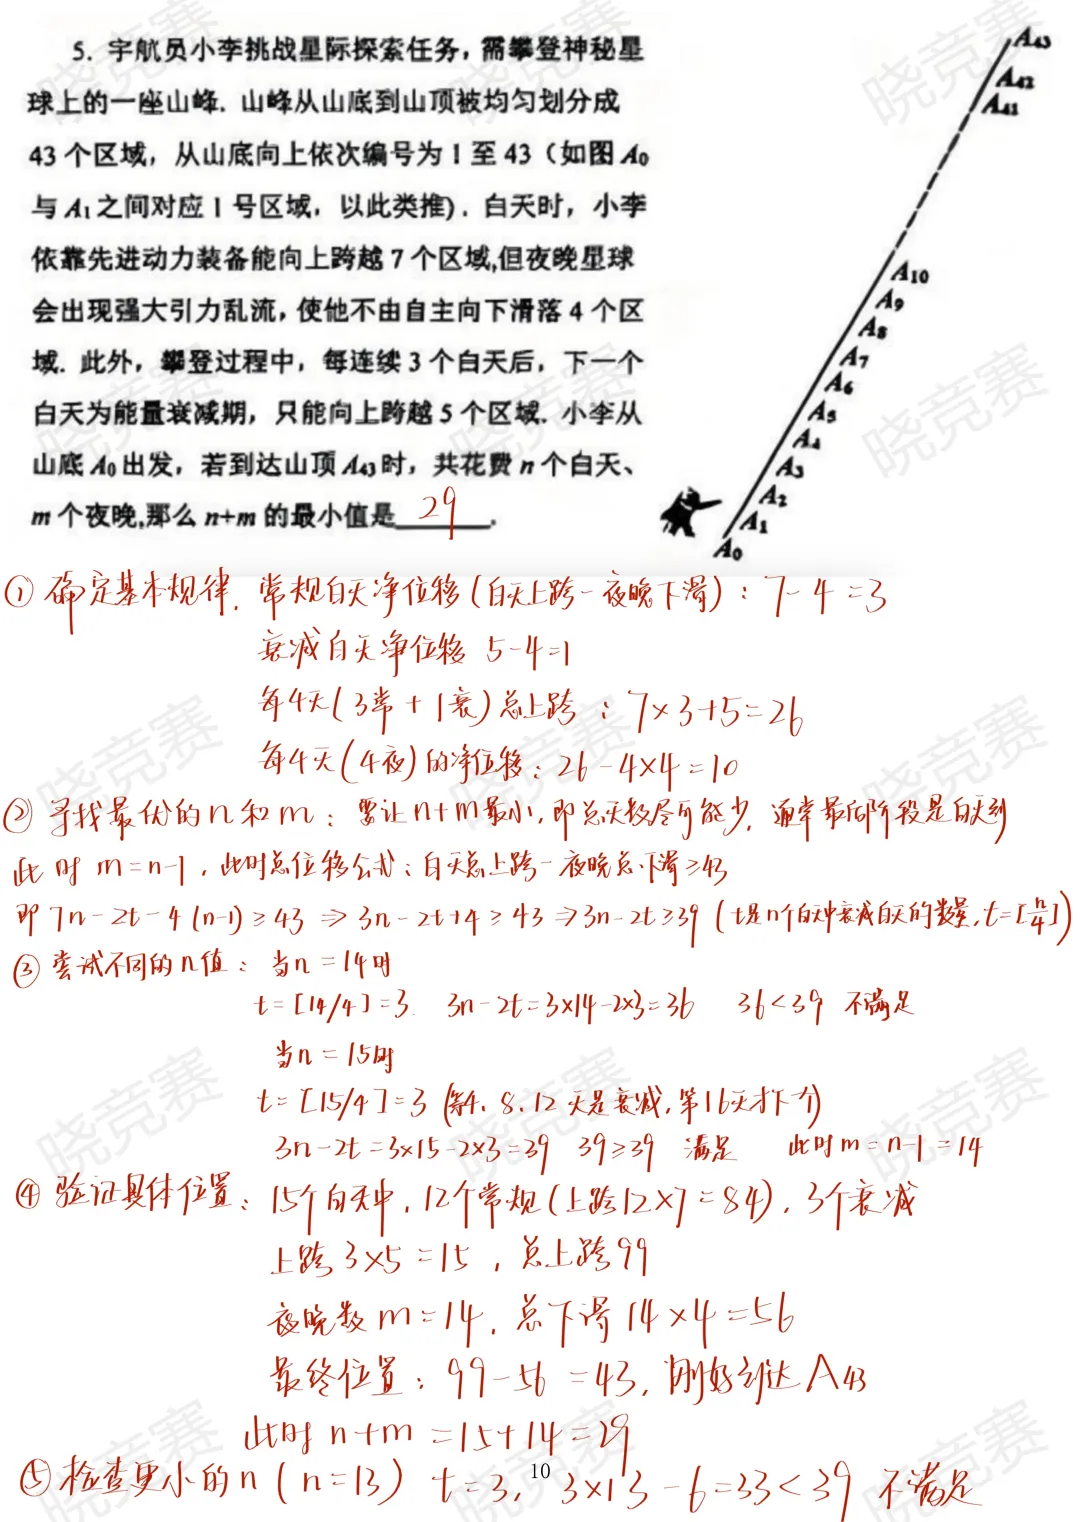 5. 宇航员小李挑战星际探索任务，需攀登神秘星
球上的一座山峰. 山峰从山底到山顶被均匀划分成
43 个区域，从山底向上依次编号为 1 至 43（如图 A₀
与 A₁ 之间对应 1 号区域，以此类推）. 白天时，小李
依靠先进动力装备能向上跨越 7 个区域,但夜晚星球
会出现强大引力乱流，使他不由自主向下滑落 4 个区
域. 此外，攀登过程中，每连续 3 个白天后，下一个
白天为能量衰减期，只能向上跨越 5 个区域. 小李从
山底 A₀ 出发，若到达山顶 A₄₃ 时，共花费 n 个白天、
m 个夜晚,那么 n+m 的最小值是 29 .
A₄₃
A₄₂
A₄₁
A₁₀
A₉
A₈
A₇
A₆
A₅
A₄
A₃
A₂
A₁
A₀
① 确定基本规律. 常规白天净位移(白天上跨-夜晚下滑)：7-4=3
衰减白天净位移 5-4=1
每4天(3常+1衰)总上跨：7×3+5=26
每4天(4夜)的净位移：26-4×4=10
② 寻找最优的n和m：要让n+m最小,即总天数尽可能少，通常最后阶段是白天到
此时 m=n-1，此时总位移公式：白天总上跨-夜晚总下滑≥43
即 7n-2t-4(n-1)≥43 ⇒ 3n-2t+4≥43 ⇒ 3n-2t≥39 (t是n个白天中衰减白天的数量,t=[n/4])
③ 尝试不同的n值：当n=14时
t=[14/4]=3. 3n-2t=3×14-2×3=36 36<39 不满足
当n=15时
t=[15/4]=3 (第4、8、12天是衰减,第16天才下个)
3n-2t=3×15-2×3=39 39≥39 满足 此时m=n-1=14
④ 验证具体位置：15个白天中，12个常规(上跨12×7=84)，3个衰减
上跨3×5=15，总上跨99
夜晚数m=14，总下滑14×4=56
最终位置：99-56=43，刚好到达A₄₃
此时n+m=15+14=29
⑤ 检查更小的n(n=13) t=3, 3×13-6=33<39 不满足
10
晓竞赛